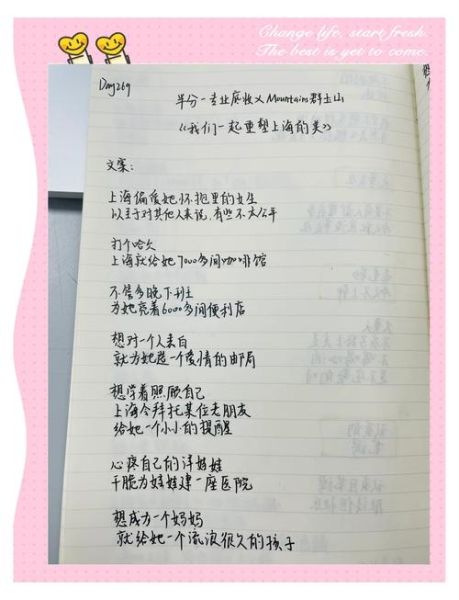 Change life, start fresh.
The best is yet to come.
Day269
半分一专业庭收义Mountains群土山
《我们一起重塑上海的美》
文案:
上海偏爱她怀抱里的女生
以至于对其他人来说,有些不太公平
打个哈欠
上海就给她7000多间咖啡馆
不管多晚下班
为她亮着6000多间便利店
想对一个人表白
就为她造一个爱情的邮局
想学着照顾自己
上海会拜托某位老朋友
给她一个小小的提醒
心疼自己的洋娃娃
干脆为娃娃建一座医院
想成为一个妈妈
就给她一个流浪很久的孩子